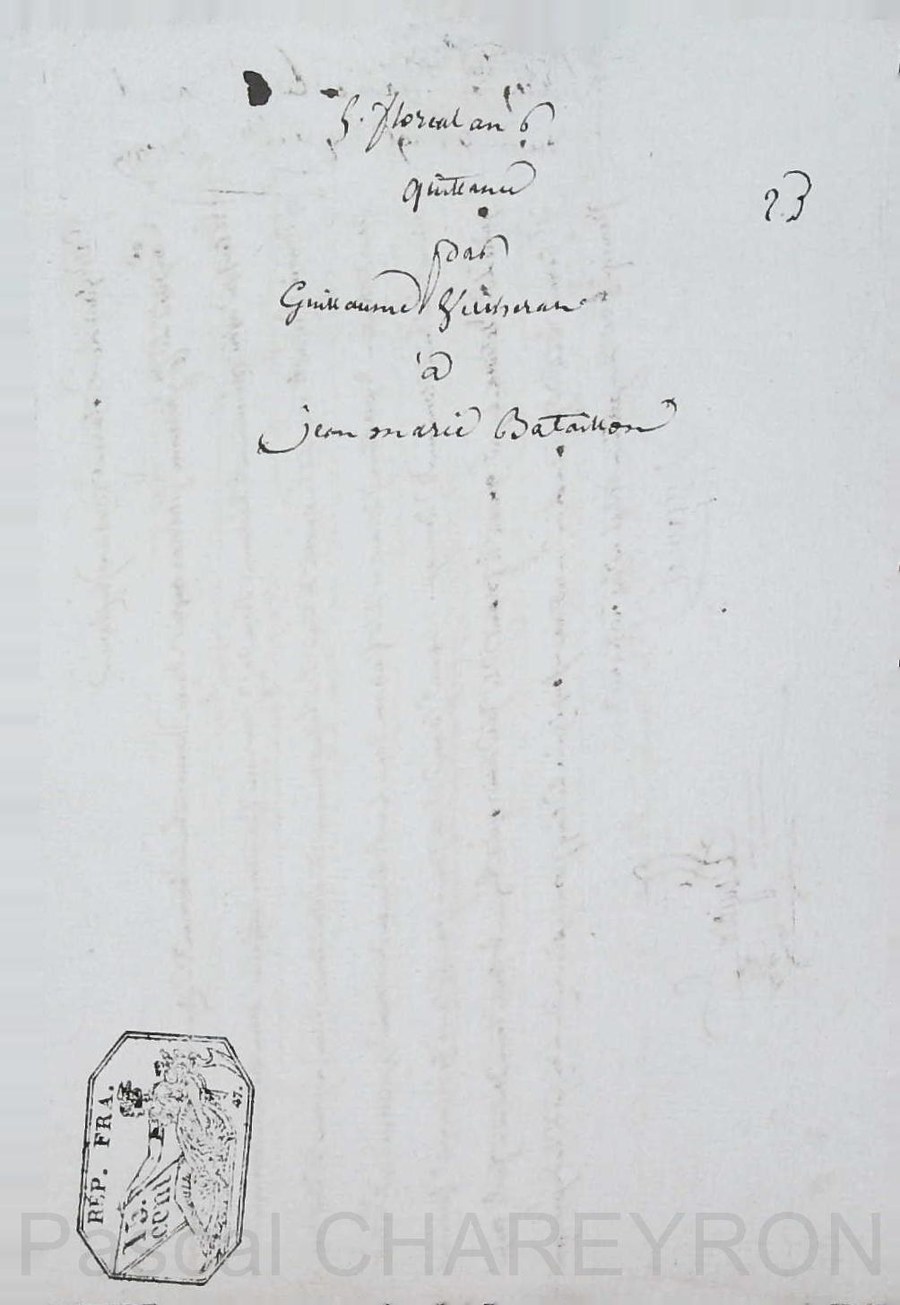 5. floreal an 6
quittance
23
par
Guillaume
à
jean marie Bataillon
REP. FRA.
15.
cent
47.
Pascal CHAREYRON